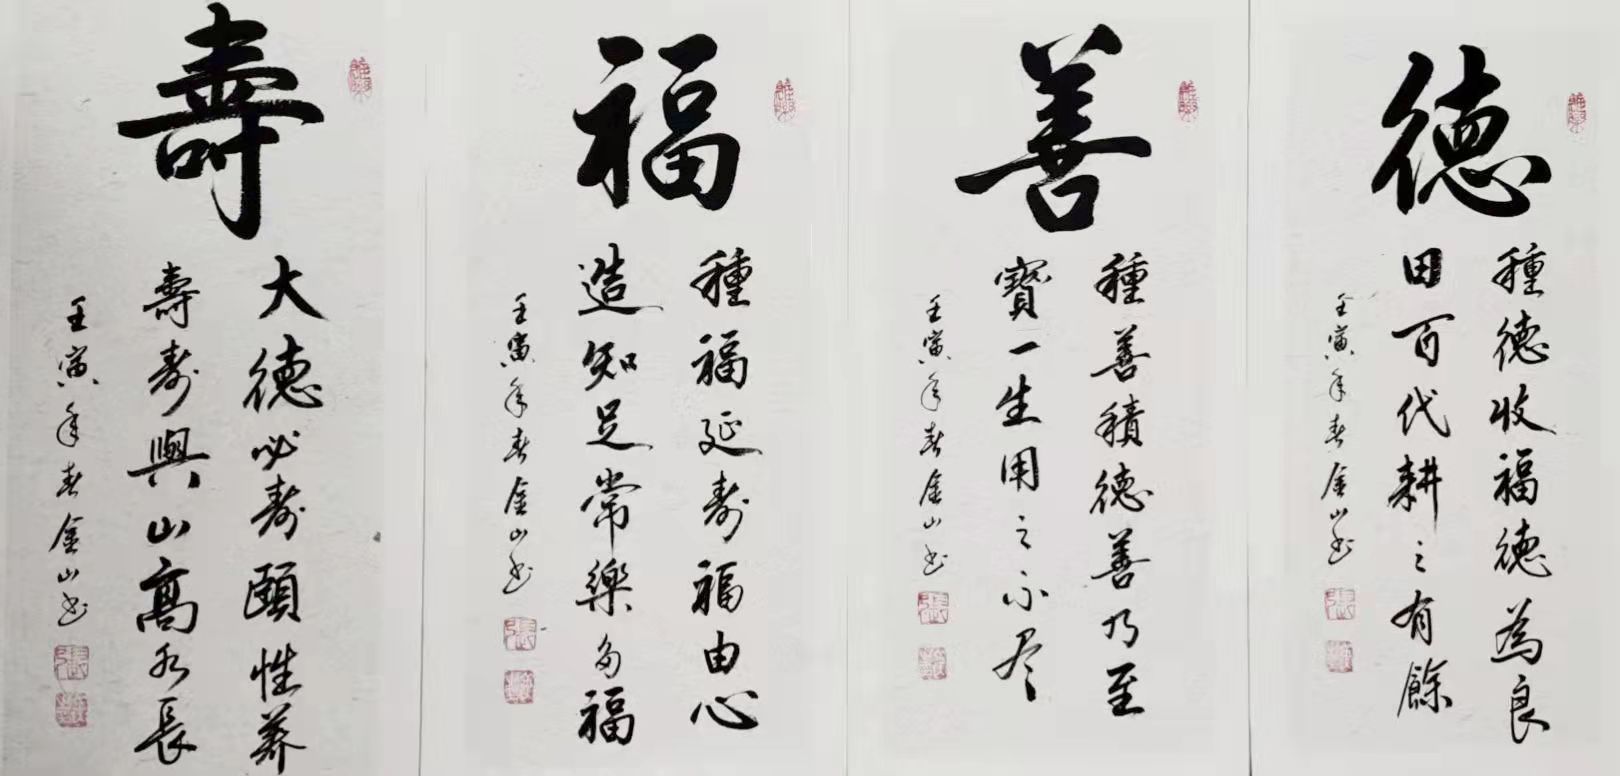 德
種德收福德為良
田百代耕之有餘
壬寅年春金山书
張
善
種善積德善乃至
寶一生用之不尽
壬寅年春金山书
張
福
種福延寿福由心
造知足常樂多福
壬寅年春金山书
張
壽
大德必寿頤性养
壽寿與山高水長
壬寅年春金山书
張